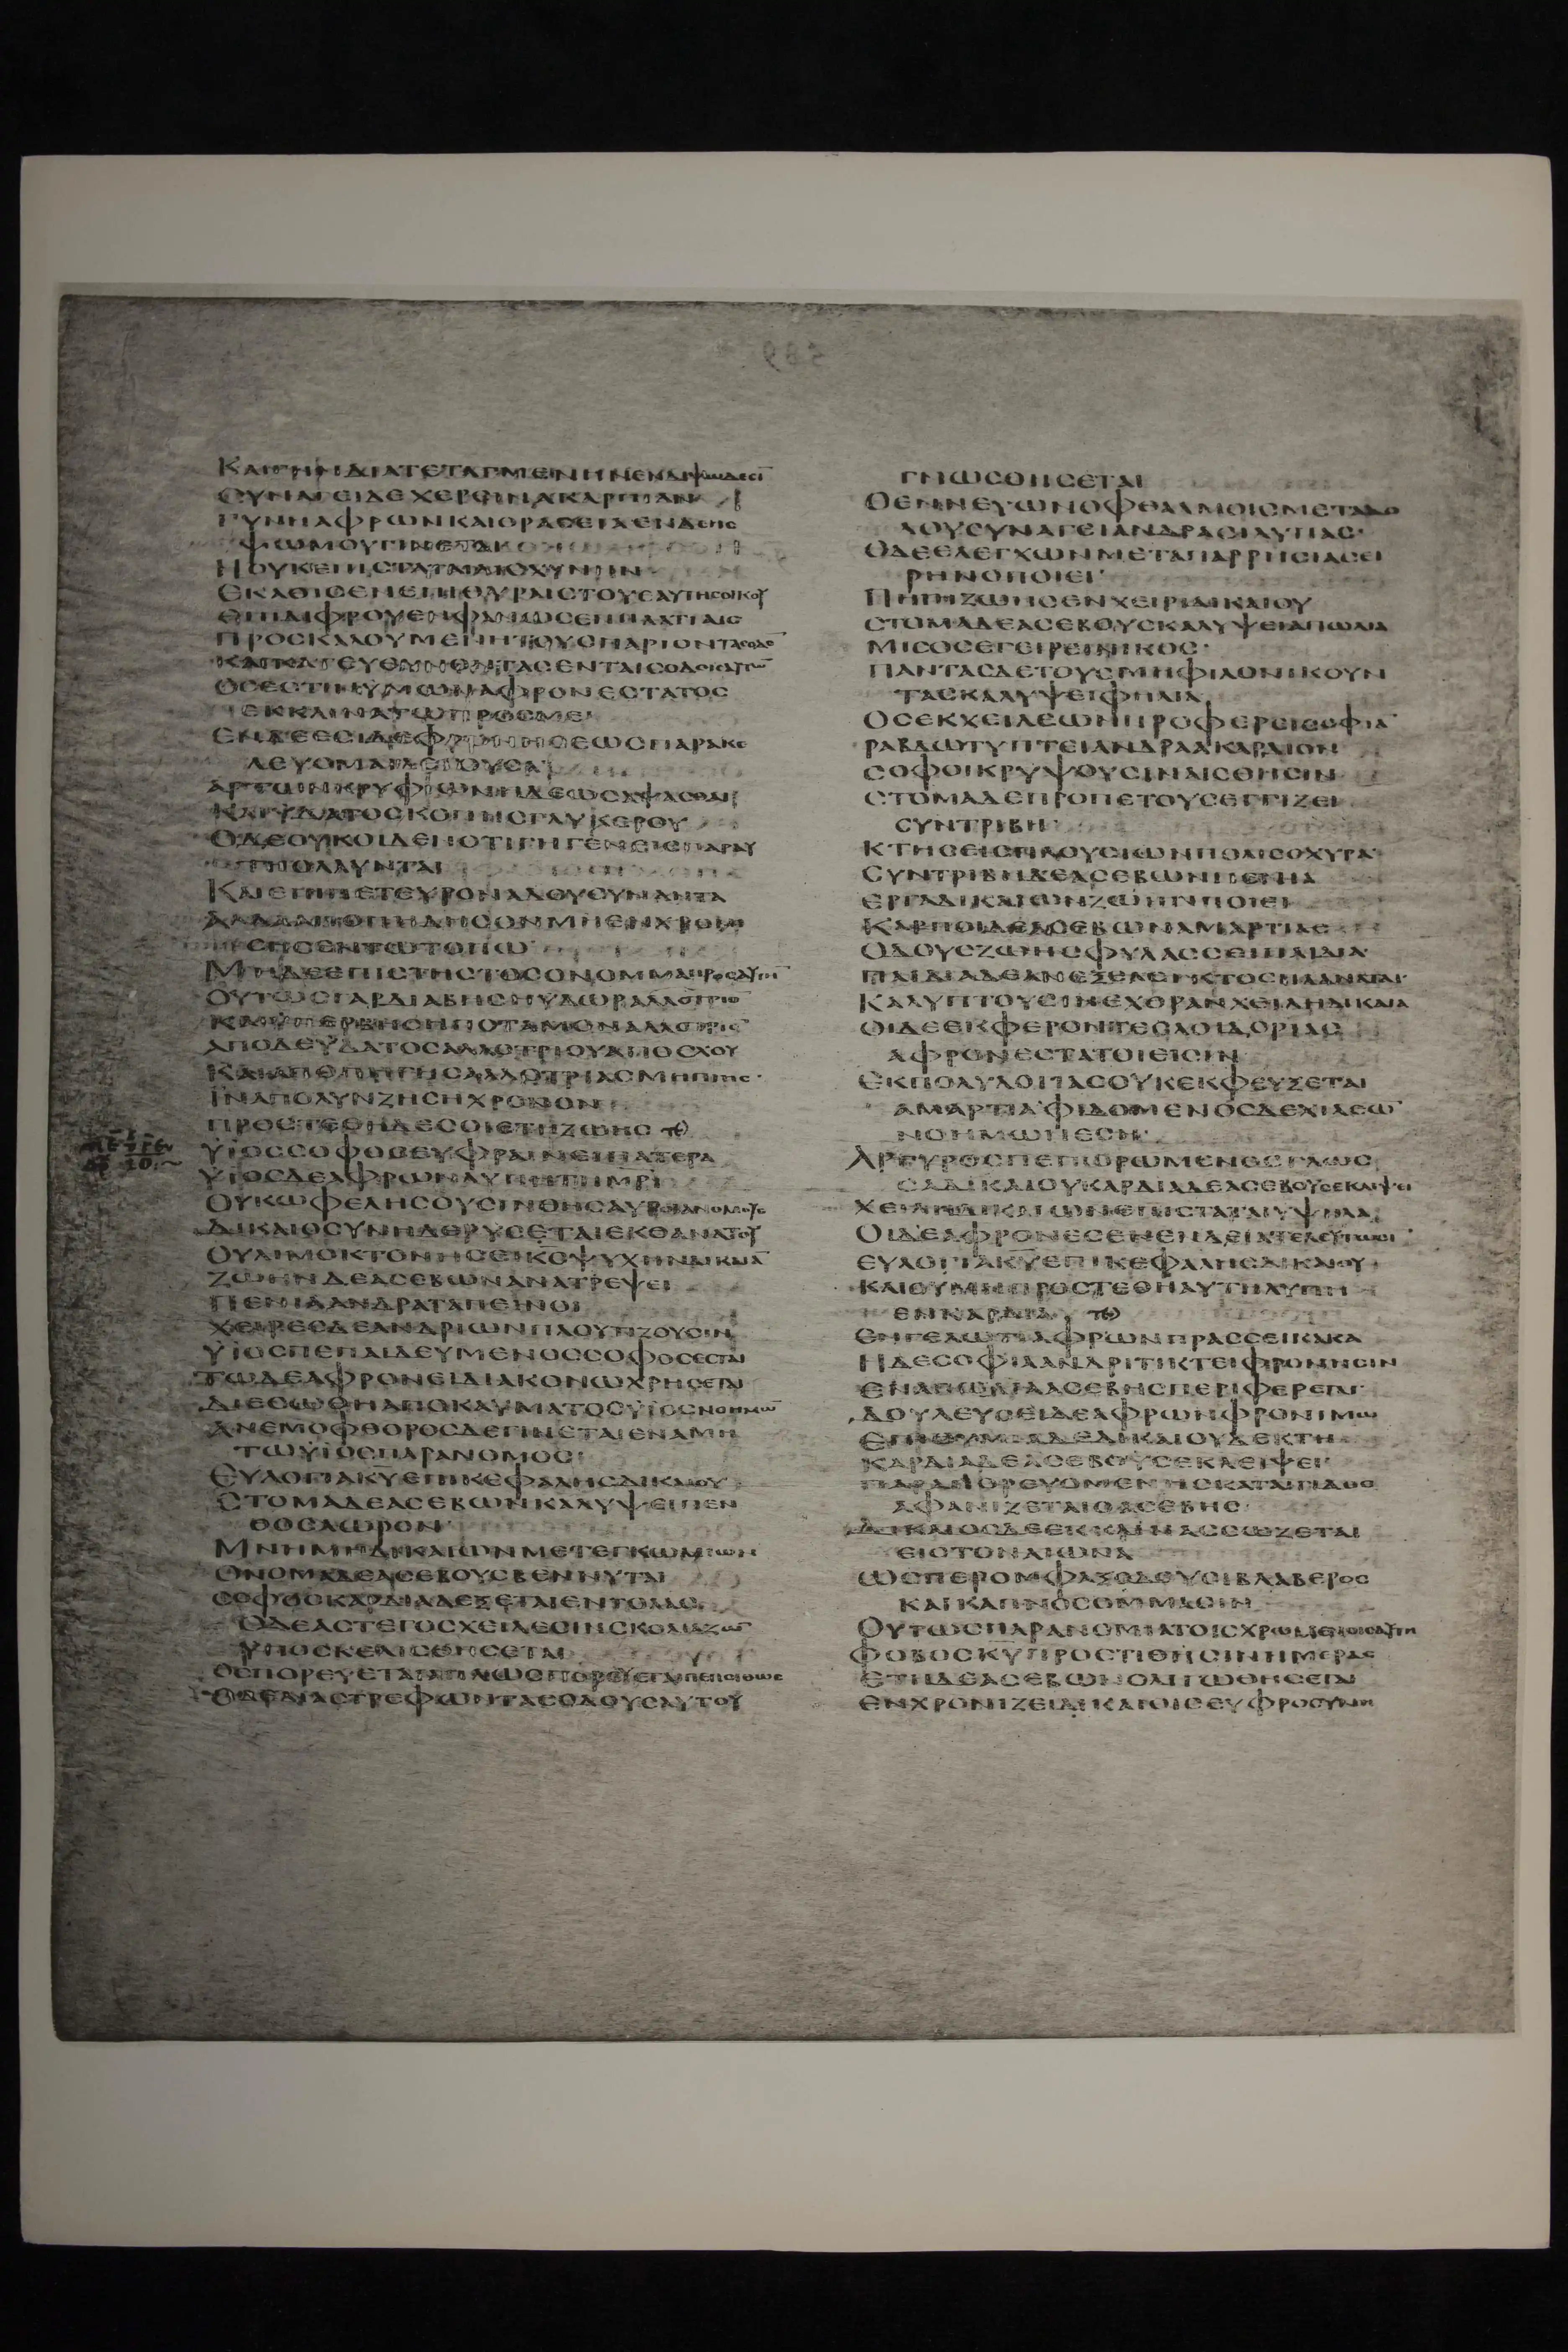 ΚΑΙΓΗΝΔΙΑΤΕΤΑΓΜΕΝΗΝΕΝΔΙΨΩΔΕϹΙ̅
ϹΥΝΑΓΕΙΔΕΧΕΡϹΙΝΑΚΑΡΠΙΑΝ
ΓΥΝΗΑΦΡΩΝΚΑΙΘΡΑϹΕΙΑΕΝΔΕΗϹ
ΨΩΜΟΥΓΙΝΕΤΑΙ
ΗΟΥΚΕΠΙϹΤΑΤΑΙΑΙϹΧΥΝΗΝ
ΕΚΑΘΙϹΕΝΕΠΙΘΥΡΑΙϹΤΟΥΕΑΥΤΗϹΟΙΚΟΥ
ΕΠΙΔΙΦΡΟΥΕΝΦΑΝΩϹΕΝΠΛΑΤΙΑΙϹ
ΠΡΟϹΚΑΛΟΥΜΕΝΗΤΟΥϹΠΑΡΙΟΝΤΑϹΟΔΟ̅
ΚΑΙΚΑΤΕΥΘΥΝΟΝΤΑϹΕΝΤΑΙϹΟΔΟΙϹΑΥΤΩ̅
ΟϹΕϹΤΙΝΥΜΩΝΑΦΡΟΝΕϹΤΑΤΟϹ
ΕΚΚΛΙΝΑΤΩΠΡΟϹΜΕ
ΕΝΔΕΕϹΙΔΕΦΡΟΝΗϹΕΩϹΠΑΡΑΚΕ
ΛΕΥΟΜΑΙΛΕΓΟΥϹΑ
ΑΡΤΩΝΚΡΥΦΙΩΝΗΔΕΩϹΑΨΑϹΘΑΙ
ΚΑΙΥΔΑΤΟϹΚΛΟΠΗϹΓΛΥΚΕΡΟΥ
ΟΔΕΟΥΚΟΙΔΕΝΟΤΙΓΗΓΕΝΕΙϹΠΑΡΑΥ
ΤΗΟΛΛΥΝΤΑΙ
ΚΑΙΕΠΙΠΕΤΕΥΡΟΝΑΔΟΥϹΥΝΑΝΤΑ
ΑΛΛΑΑΠΟΠΗΔΗϹΟΝΜΗΕΝΧΡΟΝΙ
ϹΗϹΕΝΤΩΤΟΠΩ
ΜΗΔΕΕΠΙϹΤΗϹΤΟϹΟΝΟΜΜΑΠΡΟϹΑΥΤΗ̅
ΟΥΤΩϹΓΑΡΔΙΑΒΗϹΗΥΔΩΡΑΛΛΟΤΡΙΟ̅
ΚΑΙΥΠΕΡΒΗϹΗΠΟΤΑΜΟΝΑΛΛΟΤΡΙΟ̅
ΑΠΟΔΕΥΔΑΤΟϹΑΛΛΟΤΡΙΟΥΑΠΟϹΧΟΥ
ΚΑΙΑΠΟΠΗΓΗϹΑΛΛΟΤΡΙΑϹΜΗΠΙΗϹ·
ΙΝΑΠΟΛΥΝΖΗϹΗΧΡΟΝΟΝ
ΠΡΟϹΤΕΘΗΔΕϹΟΙΕΤΗΖΩΗϹ
ΥΪΟϹϹΟΦΟϹΕΥΦΡΑΙΝΕΙΠΑΤΕΡΑ
ΥΪΟϹΔΕΑΦΡΩΝΛΥΠΗΤΗΜΡΙ
ΟΥΚΩΦΕΛΗϹΟΥϹΙΝΘΗϹΑΥΡΟΙΑΝΟΜΟΥϹ
ΔΙΚΑΙΟϹΥΝΗΔΕΡΥϹΕΤΑΙΕΚΘΑΝΑΤΟΥ
ΟΥΛΙΜΟΚΤΟΝΗϹΕΙΚϹΨΥΧΗΝΔΙΚΑΙΑ̅
ΖΩΗΝΔΕΑϹΕΒΩΝΑΝΑΤΡΕΨΕΙ
ΠΕΝΙΑΑΝΔΡΑΤΑΠΕΙΝΟΙ
ΧΕΙΡΕϹΔΕΑΝΔΡΙΩΝΠΛΟΥΤΙΖΟΥϹΙΝ
ΥΪΟϹΠΕΠΑΙΔΕΥΜΕΝΟϹϹΟΦΟϹΕϹΤΑΙ
ΤΩΔΕΑΦΡΟΝΕΙΔΙΑΚΟΝΩΧΡΗϹΕΤΑΙ
ΔΙΕϹΩΘΗΑΠΟΚΑΥΜΑΤΟϹΥΪΟϹΝΟΗΜΩ̅
ΑΝΕΜΟΦΘΟΡΟϹΔΕΓΙΝΕΤΑΙΕΝΑΜΗ
ΤΩΥΪΟϹΠΑΡΑΝΟΜΟϹ
ΕΥΛΟΓΙΑΚΥΕΠΙΚΕΦΑΛΗϹΔΙΚΑΙΟΥ
ϹΤΟΜΑΔΕΑϹΕΒΩΝΚΑΛΥΨΕΙΠΕΝ
ΘΟϹΑΩΡΟΝ
ΜΝΗΜΗΔΙΚΑΙΩΝΜΕΤΕΓΚΩΜΙΩΝ
ΟΝΟΜΑΔΕΑϹΕΒΟΥϹϹΒΕΝΝΥΤΑΙ
ϹΟΦΟϹΚΑΡΔΙΑΔΕΞΕΤΑΙΕΝΤΟΛΑϹ
ΟΔΕΑϹΤΕΓΟϹΧΕΙΛΕϹΙΝϹΚΟΛΙΑΖΩ̅
ΥΠΟϹΚΕΛΙϹΘΗϹΕΤΑΙ
ΟϹΠΟΡΕΥΕΤΑΙΑΠΛΩϹΠΟΡΕΥΕΤΑΙΠΕΠΟΙΘΩϹ
ΟΔΕΔΙΑϹΤΡΕΦΩΝΤΑϹΟΔΟΥϹΑΥΤΟΥ
ΓΝΩϹΘΗϹΕΤΑΙ
ΟΕΝΝΕΥΩΝΟΦΘΑΛΜΟΙϹΜΕΤΑΔΟ
ΛΟΥϹΥΝΑΓΕΙΑΝΔΡΑϹΙΛΥΠΑϹ·
ΟΔΕΕΛΕΓΧΩΝΜΕΤΑΠΑΡΡΗϹΙΑϹΕΙ
ΡΗΝΟΠΟΙΕΙ·
ΠΗΓΗΖΩΗϹΕΝΧΕΙΡΙΔΙΚΑΙΟΥ
ϹΤΟΜΑΔΕΑϹΕΒΟΥϹΚΑΛΥΨΕΙΑΠΩΛΙΑ
ΜΙϹΟϹΕΓΕΙΡΕΙΝΙΚΟϹ·
ΠΑΝΤΑϹΔΕΤΟΥϹΜΗΦΙΛΟΝΙΚΟΥΝ
ΤΑϹΚΑΛΥΨΕΙΦΙΛΙΑ
ΟϹΕΚΧΕΙΛΕΩΝΠΡΟΦΕΡΕΙϹΟΦΙΑ̅
ΡΑΒΔΩΤΥΠΤΕΙΑΝΔΡΑΑΚΑΡΔΙΟΝ
ϹΟΦΟΙΚΡΥΨΟΥϹΙΝΑΙϹΘΗϹΙΝ
ϹΤΟΜΑΔΕΠΡΟΠΕΤΟΥϹΕΓΓΙΖΕΙ
ϹΥΝΤΡΙΒΗ
ΚΤΗϹΕΙϹΠΛΟΥϹΙΩΝΠΟΛΙϹΟΧΥΡΑ
ϹΥΝΤΡΙΒΗΔΕΑϹΕΒΩΝΠΕΝΙΑ
ΕΡΓΑΔΙΚΑΙΩΝΖΩΗΝΠΟΙΕΙ
ΚΑΡΠΟΙΔΕΑϹΕΒΩΝΑΜΑΡΤΙΑϹ
ΟΔΟΥϹΖΩΗϹΦΥΛΑϹϹΕΙΠΑΙΔΙΑ
ΠΑΙΔΙΑΔΕΑΝΕΞΕΛΕΓΚΤΟϹΠΛΑΝΑΤΑΙ·
ΚΑΛΥΠΤΟΥϹΙΝΕΧΘΡΑΝΧΕΙΛΗΔΙΚΑΙΑ
ΟΙΔΕΕΚΦΕΡΟΝΤΕϹΛΟΙΔΟΡΙΑϹ
ΑΦΡΟΝΕϹΤΑΤΟΙΕΙϹΙΝ
ΕΚΠΟΛΥΛΟΓΙΑϹΟΥΚΕΚΦΕΥΞΕΤΑΙ
ΑΜΑΡΤΙΑ̅ΦΙΔΟΜΕΝΟϹΔΕΧΙΛΕΩ̅
ΝΟΗΜΩΝΕϹΗ·
ΑΡΓΥΡΟϹΠΕΠΥΡΩΜΕΝΟϹΓΛΩϹ
ϹΑΔΙΚΑΙΟΥΚΑΡΔΙΑΔΕΑϹΕΒΟΥϹΕΚΛΙΨΕΙ
ΧΕΙΛΗΔΙΚΑΙΩΝΕΠΙϹΤΑΤΑΙΥΨΗΛΑ
ΟΙΔΕΑΦΡΟΝΕϹΕΝΕΝΔΕΙΑΤΕΛΕΥΤΩϹΙ
ΕΥΛΟΓΙΑΚΥΕΠΙΚΕΦΑΛΗϹΔΙΚΑΙΟΥ
ΚΑΙΟΥΜΗΠΡΟϹΤΕΘΗΑΥΤΗΛΥΠΗ
ΕΝΚΑΡΔΙΑ
ΕΝΓΕΛΩΤΙΑΦΡΩΝΠΡΑϹϹΕΙΚΑΚΑ
ΗΔΕϹΟΦΙΑΑΝΔΡΙΤΙΚΤΕΙΦΡΟΝΗϹΙΝ
ΕΝΑΠΩΛΙΑΑϹΕΒΗϹΠΕΡΙΦΕΡΕΤΑΙ·
ΔΟΥΛΕΥϹΕΙΔΕΑΦΡΩΝΦΡΟΝΙΜΩ
ΕΠΙΘΥΜΙΑΔΕΔΙΚΑΙΟΥΔΕΚΤΗ
ΚΑΡΔΙΑΔΕΑϹΕΒΟΥϹΕΚΛΕΙΨΕΙ
ΠΑΡΑΠΟΡΕΥΟΜΕΝΗϹΚΑΤΑΙΓΙΔΟϹ
ΑΦΑΝΙΖΕΤΑΙΟΑϹΕΒΗϹ
ΔΙΚΑΙΟϹΔΕΕΚΚΛΙΝΑϹϹΩΖΕΤΑΙ
ΕΙϹΤΟΝΑΙΩΝΑ
ΩϹΠΕΡΟΜΦΑΞΟΔΟΥϹΙΒΛΑΒΕΡΟϹ
ΚΑΙΚΑΠΝΟϹΟΜΜΑϹΙΝ
ΟΥΤΩϹΠΑΡΑΝΟΜΙΑΤΟΙϹΧΡΩΜΕΝΟΙϹΑΥΤΗ
ΦΟΒΟϹΚΥΠΡΟϹΤΙΘΗϹΙΝΗΜΕΡΑϹ
ΕΤΗΔΕΑϹΕΒΩΝΟΛΙΓΩΘΗϹΕΤΑΙ
ΕΝΧΡΟΝΙΖΕΙΔΙΚΑΙΟΙϹΕΥΦΡΟϹΥΝΗ